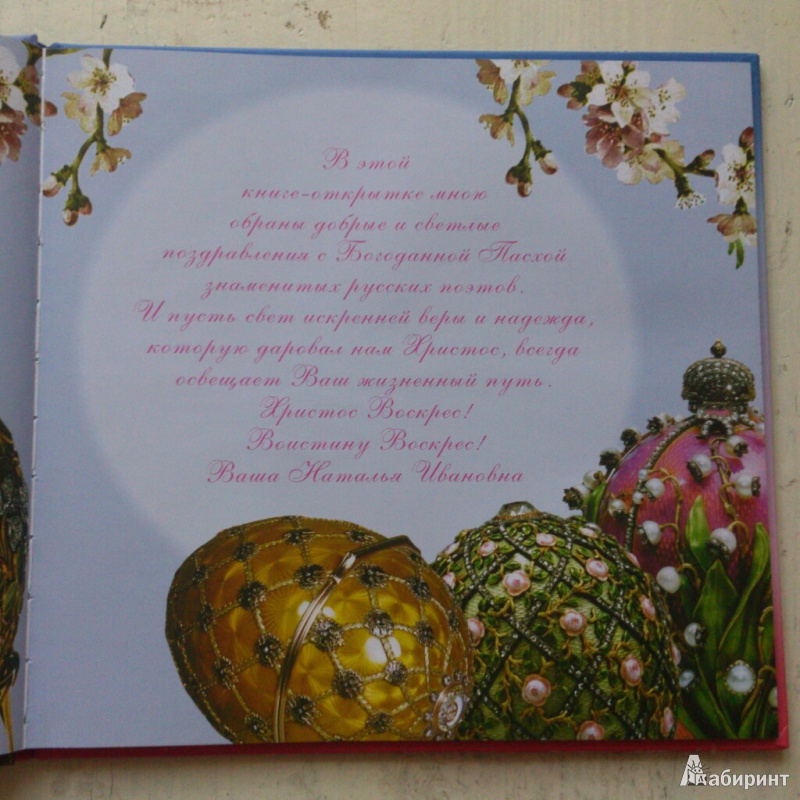 В этой
книге-открытке мною
обраны добрые и светлые
поздравления с Богоданной Пасхой
знаменитых русских поэтов.
И пусть свет искренней веры и надежда,
которую даровал нам Христос, всегда
освещает Ваш жизненный путь.
Христос Воскрес!
Воистину Воскрес!
Ваша Наталья Ивановна
Лабиринт